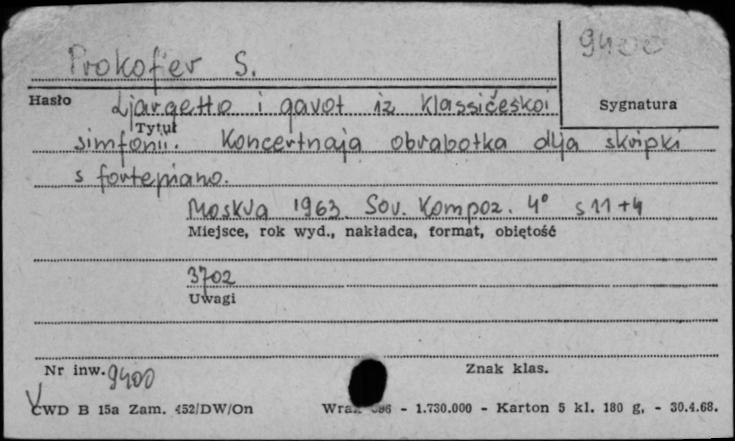 Prokof'ev S.
9400
Hasło
Ljargetto i gavot iz klassičeskoi
Sygnatura
Tytuł
simfonii. Koncertnaja obrabotka dlja skripki
s fortepiano.
Moskva 1963. Sov. Kompoz. 4° s 11+4
Miejsce, rok wyd., nakładca, format, objętość
3702
Uwagi
Nr inw. 9400
Znak klas.
CWD B 15a Zam. 452/DW/On
- 1.730.000 - Karton 5 kl. 180 g. - 30.4.68.